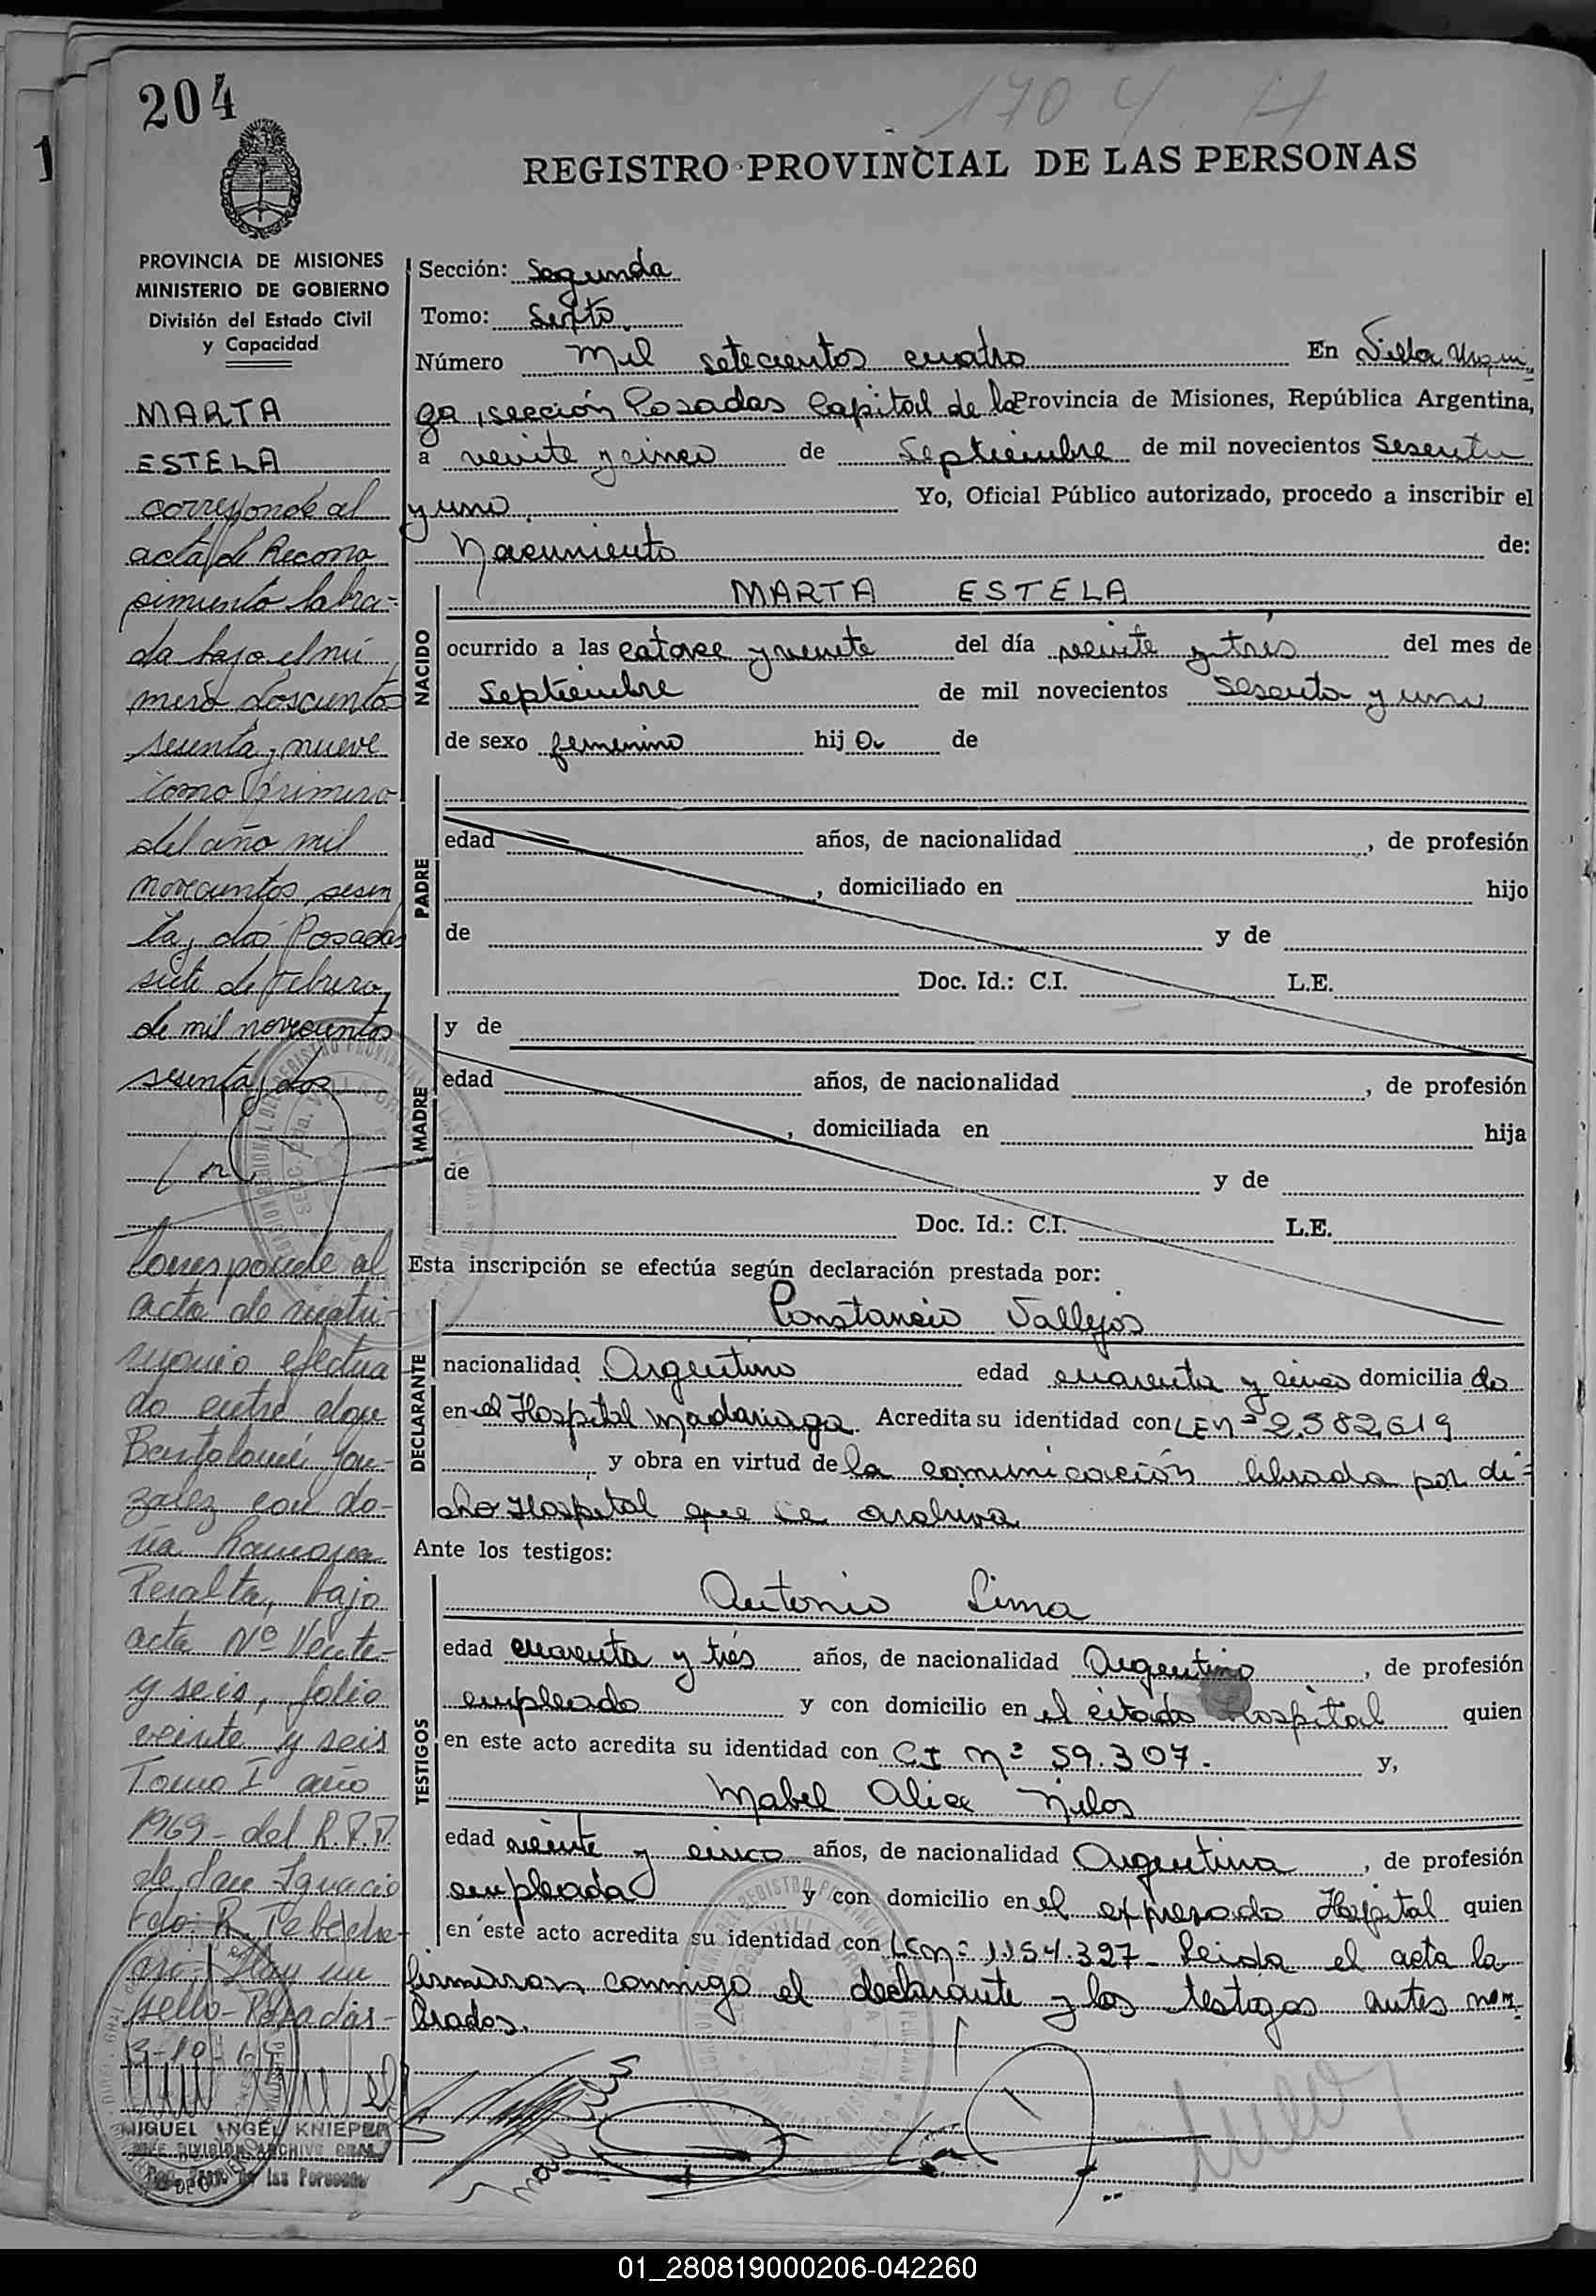 204
1704 H
1
REGISTRO PROVINCIAL DE LAS PERSONAS
PROVINCIA DE MISIONES
MINISTERIO DE GOBIERNO
División del Estado Civil
y Capacidad
MARTA
ESTELA
corresponde al
acta de Recono
simiento labra-
da bajo el nú
mero doscientos
sesenta y nueve
tomo primero
del año mil
novecientos sesen
ta y dos Posadas
siete de Febrero
de mil novecientos
sesenta y dos
Corresponde al
acta de matri-
monio efectua
do entre don
Bartolomé Gon-
zalez con do-
ña Ramona
Peralta, bajo
acta Nº Veinte-
y seis, folio
veinte y seis
Tomo I año
1969 - del R.P.P.
de San Ignacio
Fdo: R.
Hay un
sello - Posadas -
3-10-
MIGUEL ANGEL KNIEPER
JEFE DIVISION ARCHIVO GRAL.
de las Personas
Sección: Segunda
Tomo: Septo
Número Mil setecientos cuatro En Villa Urqui
za, sección Posadas Capital de la Provincia de Misiones, República Argentina,
a veinte y cinco de Septiembre de mil novecientos Sesenta
y uno. Yo, Oficial Público autorizado, procedo a inscribir el
Nacimiento de:
NACIDO
MARTA ESTELA
ocurrido a las catorce y veinte del día veinte y trés del mes de
Septiembre de mil novecientos Sesenta y uno
de sexo femenino hij a de
PADRE
edad años, de nacionalidad , de profesión
, domiciliado en hijo
de y de
Doc. Id.: C.I. L.E.
MADRE
y de
edad años, de nacionalidad , de profesión
, domiciliada en hija
de y de
Doc. Id.: C.I. L.E.
Esta inscripción se efectúa según declaración prestada por:
DECLARANTE
Constancio Vallejos
nacionalidad Argentino edad cuarenta y cinco domicilia do
en el Hospital Madariaga. Acredita su identidad con LE nº 2.582.619
y obra en virtud de la comunicación librada por di-
cho Hospital que se archiva
Ante los testigos:
TESTIGOS
Antonio Lima
edad cuarenta y trés años, de nacionalidad Argentino, de profesión
empleado y con domicilio en el citado Hospital quien
en este acto acredita su identidad con CI nº 59.307. y,
Mabel Alice
edad veinte y cinco años, de nacionalidad Argentina, de profesión
empleada y con domicilio en el expresado Hospital quien
en este acto acredita su identidad con LC nº 1.154.327 - Leida el acta la
firmaron conmigo el declarante y los testigos antes nom-
brados.
01_280819000206-042260